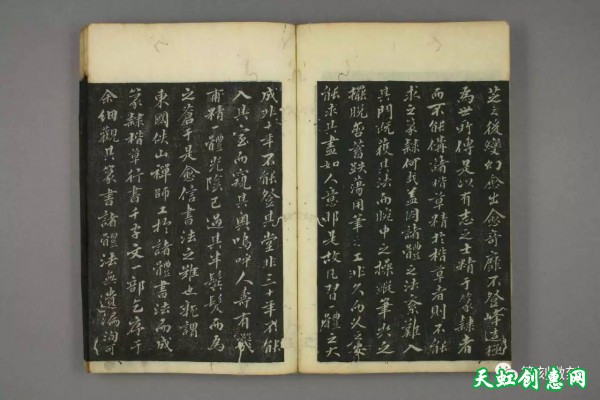 芝之後變幻愈出愈奇靡不登峰造極
為世所傳是以有志之士精于篆隸者
而不能備諸楷草精於楷草者則不能
求之篆隸何哉蓋因諸體之法案難入
其門既獲其法而腕中之操縱筆尖之
擺脫
用筆之工非久而又久
能求其盡如人意非是故凡習一體之大
成非十年不能登其堂非三十年不能
入其室而窺其奧嗚呼人壽有幾
甫精一體光陰已過其半鬢髮而為
之蒼于是愈信書法之難也
謂
東國俠山禪師工於諸體書法而成
篆隸楷草行書千字文一部乞序于
余細觀其篆書諸體法無遺漏洵可
篆刻教有
天虹创意网